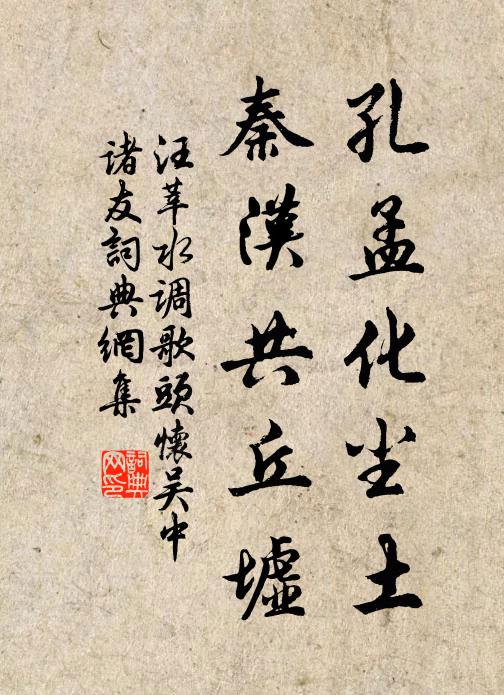 孔孟化尘土
秦漢共丘墟
汪莘水调歌頭懷吴中
诸友詞典網集
詞典
网印